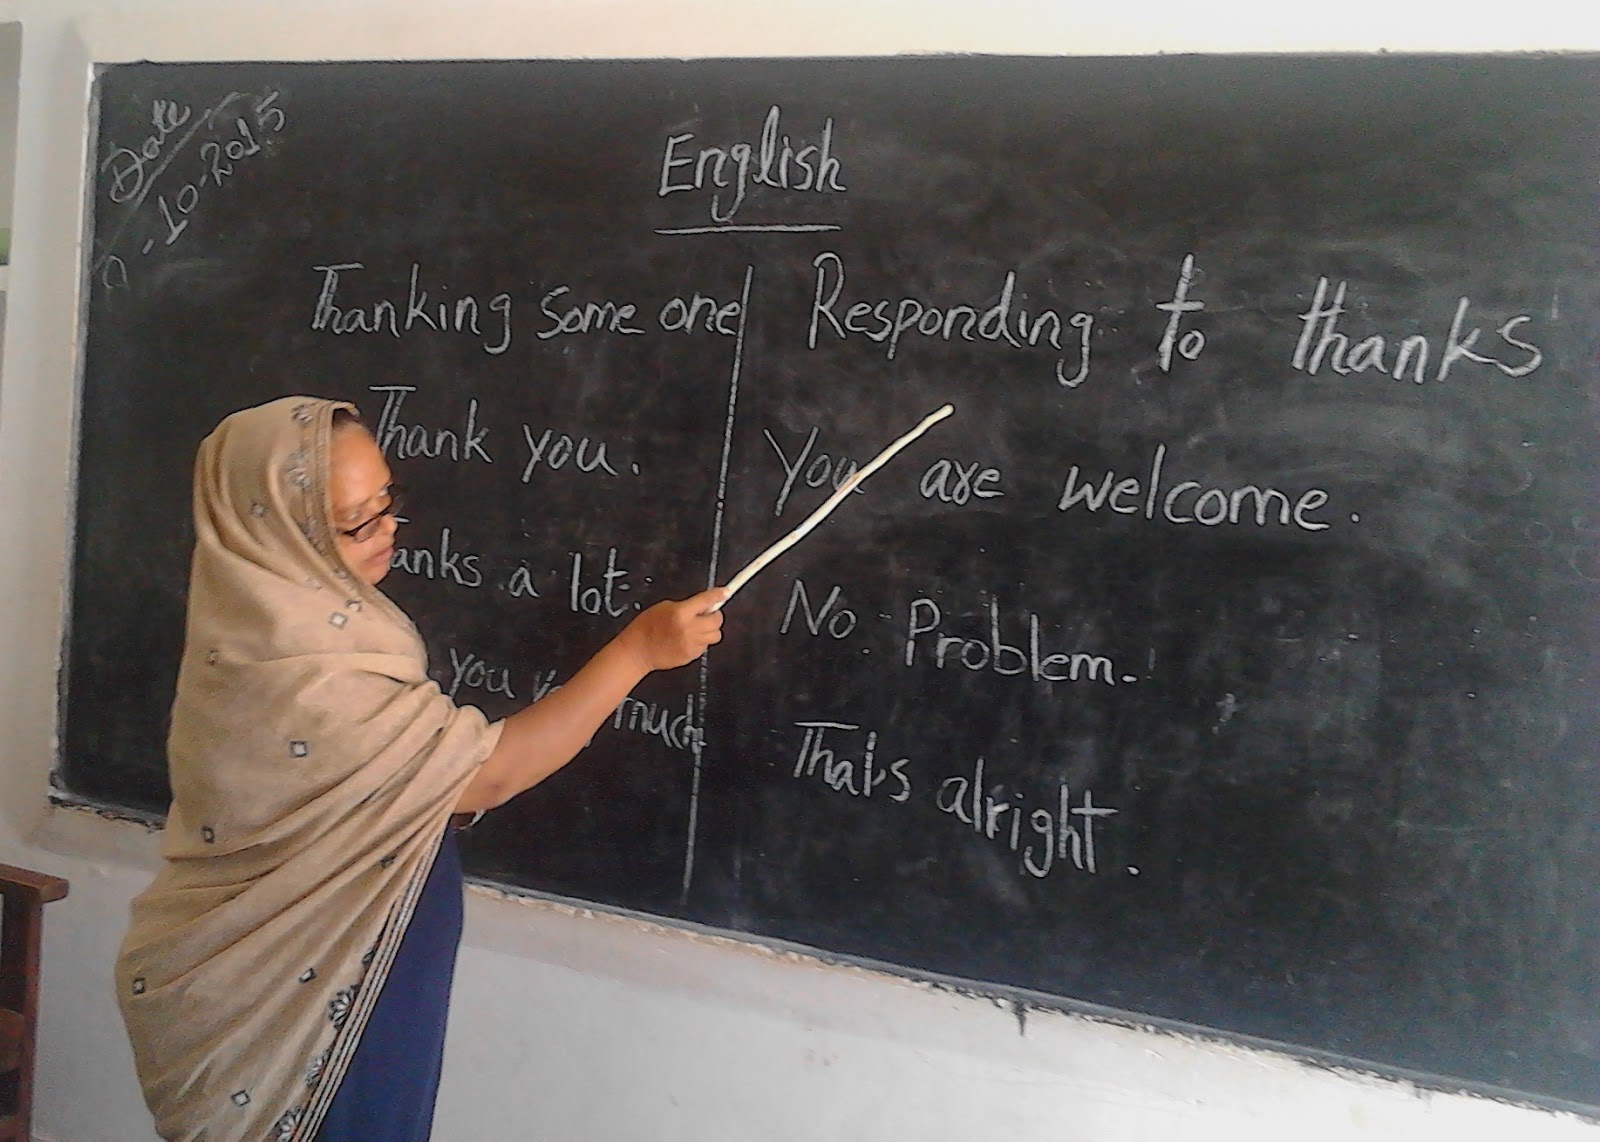 Date
-10-2015
English
Thanking some one
Responding to thanks
Thank you.
You are welcome.
anks a lot.
No Problem.
you much
That's alright.